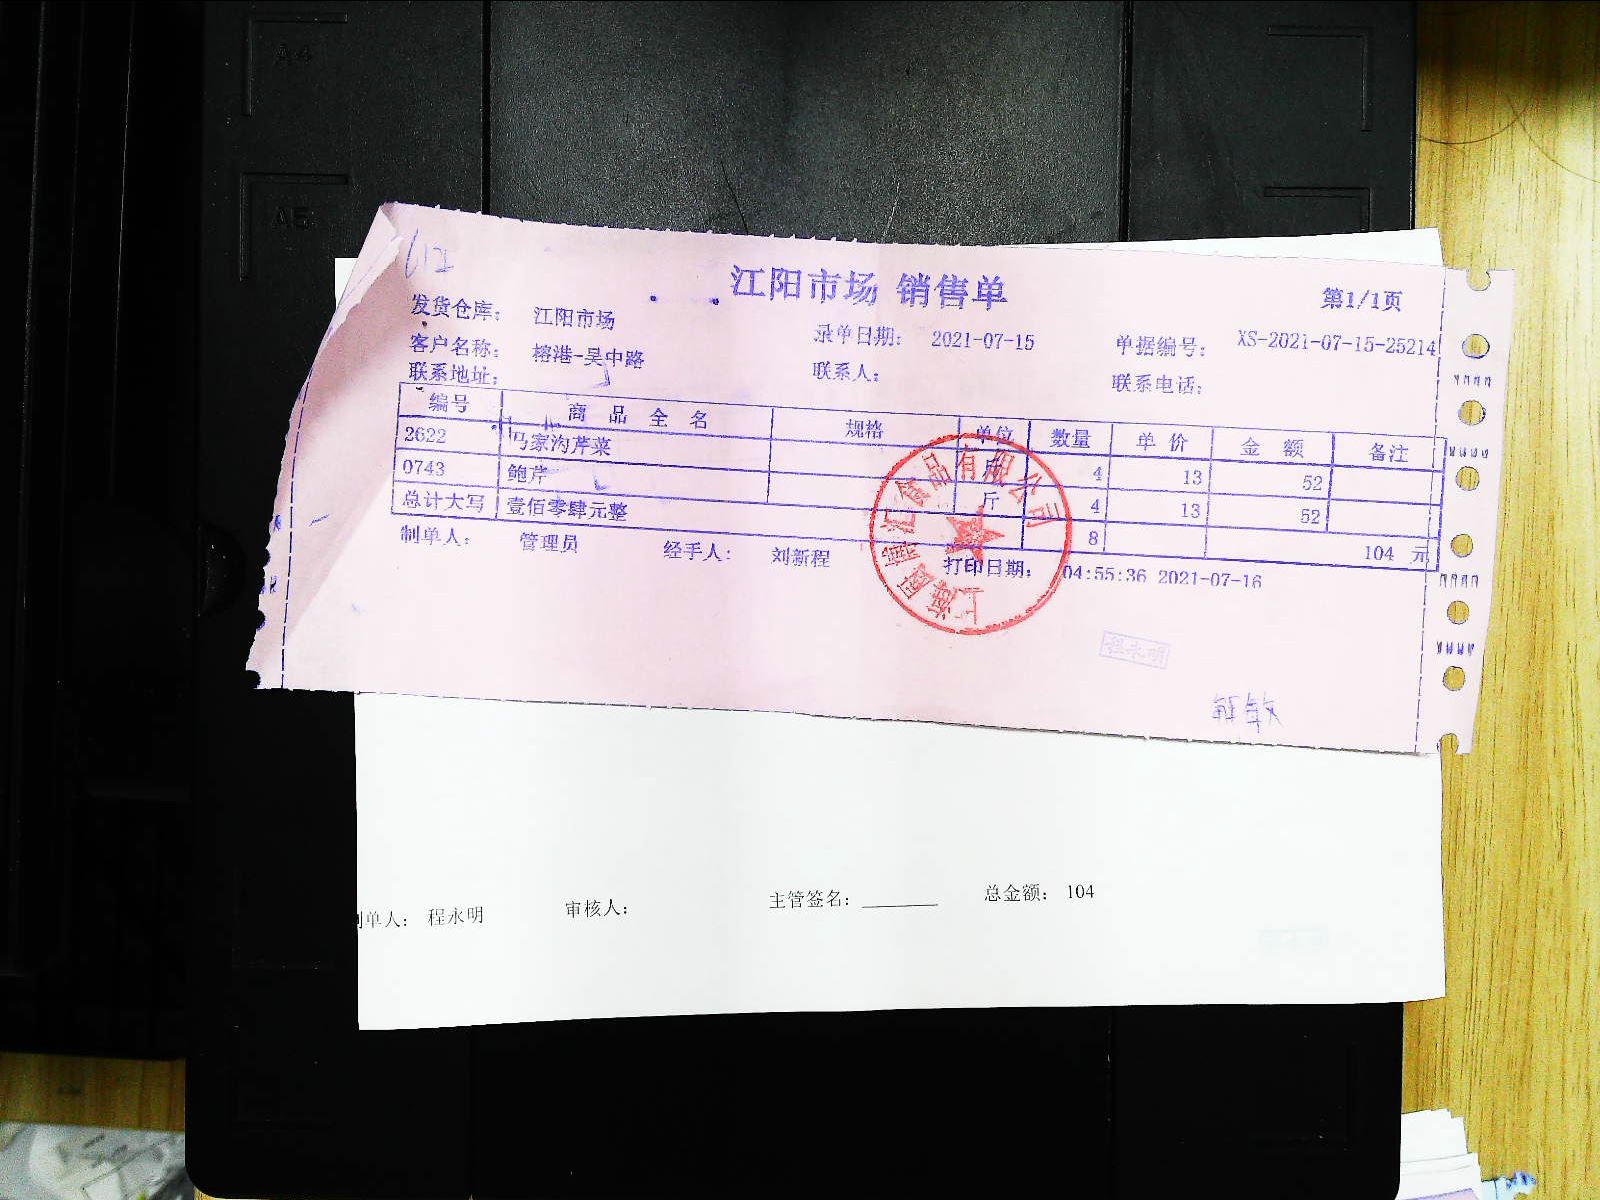 A4
A5
江阳市场 销售单
第1/1页
发货仓库: 江阳市场 录单日期: 2021-07-15 单据编号: XS-2021-07-15-25214
客户名称: 榕港-吴中路 联系人: 联系电话:
联系地址:
编号 商品全名 规格 单位 数量 单价 金额 备注
2622 马家沟芹菜 斤 4 13 52
0743 鲍芹 斤 4 13 52
总计大写 壹佰零肆元整 8 104 元
制单人: 管理员 经手人: 刘新程 打印日期: 04:55:36 2021-07-16
程永明
制单人: 程永明 审核人: 主管签名: ________ 总金额: 104